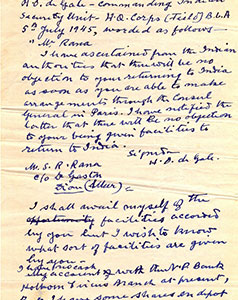 H.D. de Gale - Commanding Indian
Security Unit H.Q. Corps (Field) B.U.A
5th July 1945, worded as follows -
"Mr. Rana
I have ascertained from the Indian
authorities that there will be no
objection to your returning to India
as soon as you are able to make
arrangements through the Consul
General in Paris. I have notified the
latter that there will be no objection
to your being given facilities to
return to India.
Signed
H.D. de Gale.
M. S. R. Rana
c/o D. Gaston
Dion (Allier) =
I shall avail myself of the
opportunity facilities accorded
by you but I wish to know
what sort of facilities are given
by you -
I have
my account with the Bank
Holborn Circus Branch at present,
I have some shares on depot